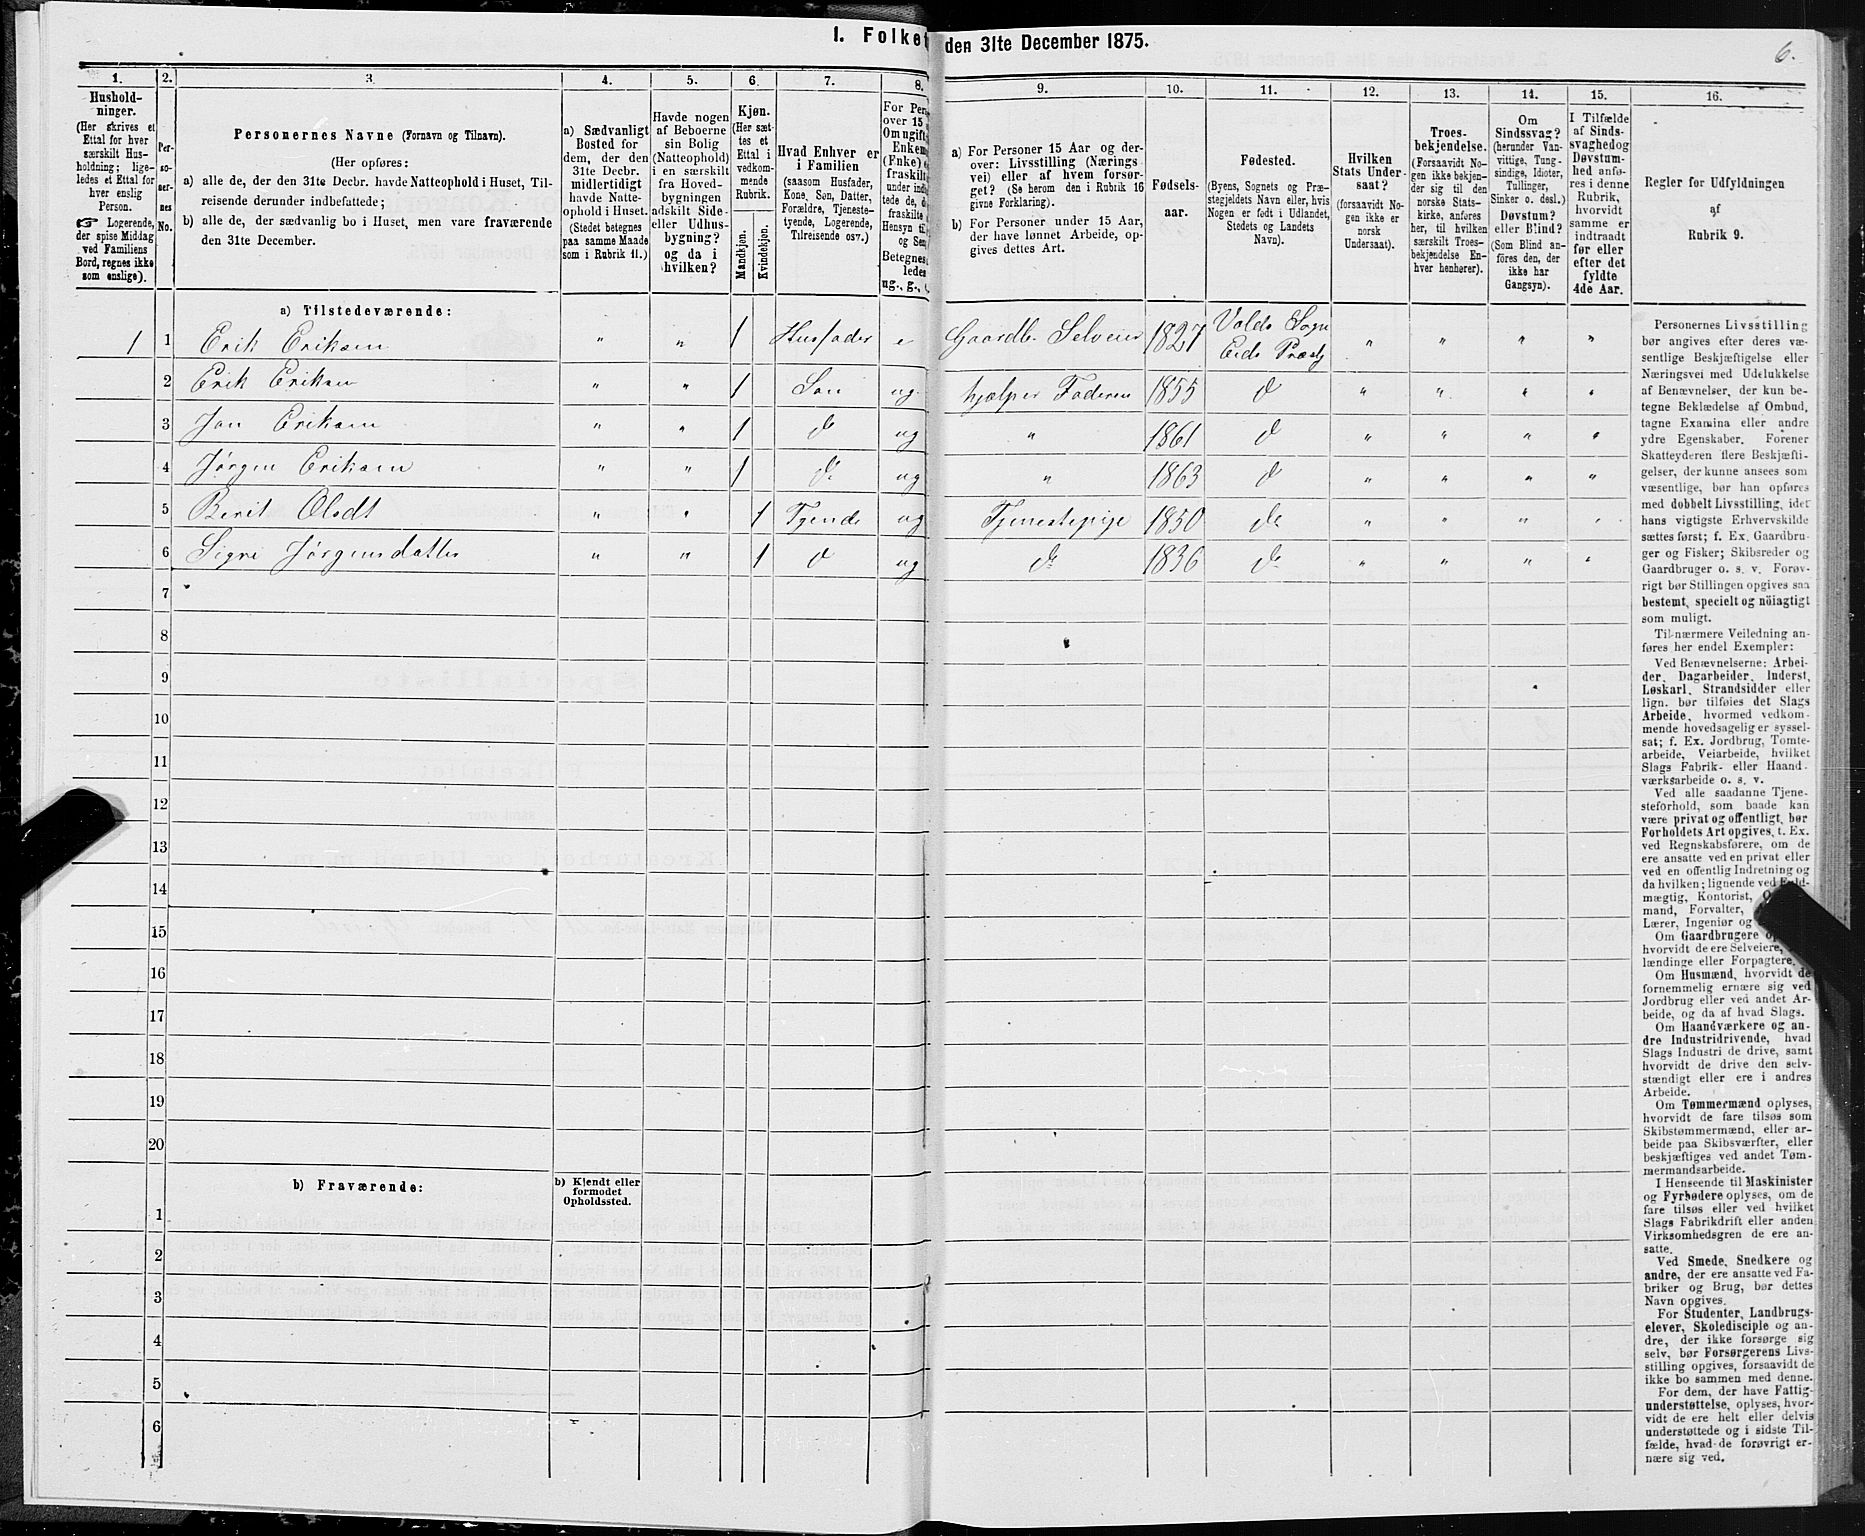 I. Folket
den 31te December 1875.
6.
1.
Hushold-
ninger.
(Her skrives et
Ettal for hver
særskilt Hus-
holdning; lige-
ledes et Ettal for
hver enslig
Person.
☞ Logerende,
der spise Middag
ved Familiens
Bord, regnes ikke
som enslige).
2.
Per-
so-
ner-
nes
No.
3.
Personernes Navne (Fornavn og Tilnavn).
(Her opføres:
a) alle de, der den 31te Decbr. havde Natteophold i Huset, Til-
reisende derunder indbefattede;
b) alle de, der sædvanlig bo i Huset, men vare fraværende
den 31te December.
4.
a) Sædvanligt
Bosted for
dem, der den
31te Decbr.
midlertidigt
havde Natte-
ophold i Huset.
(Stedet betegnes
paa samme Maade
som i Rubrik 11.)
5.
Havde nogen
af Beboerne
sin Bolig
(Natteophold)
i en særskilt
fra Hoved-
bygningen
adskilt Side-
eller Udhus-
bygning?
og da i
hvilken?
6.
Kjøn.
(Her sæt-
tes et
Ettal i
vedkom-
mende
Rubrik.
Mandkjøn.
Kvindekjøn.
7.
Hvad Enhver er
i Familien
(saasom Husfader,
Kone, Søn, Datter,
Forældre, Tjeneste-
tyende, Logerende,
Tilreisende osv.).
8.
For Per
over 15
Om ugift
Enkem
(Fnke)
fraskilt
under indl
tede de, d
fraskilte
Hensyn til
og Sen
Betegnes
ledes
ug., g.,
9.
a) For Personer 15 Aar og der-
over: Livsstilling (Nærings
vei) eller af hvem forsør-
get? (Se herom den i Rubrik 16
givne Forklaring).
b) For Personer under 15 Aar,
der have lønnet Arbeide, op-
gives dettes Art.
10.
Fødsels-
aar.
11.
Fødested.
(Byens, Sognets og Præ-
stegjeldets Navn eller, hvis
Nogen er født i Udlandet,
Stedets og Landets
Navn).
12.
Hvilken
Stats Under-
saat?
(forsaavidt No-
gen ikke er
norsk
Undersaat).
13.
Troes-
bekjendelse.
(Forsaavidt No-
gen ikke bekjen-
der sig til den
norske Stats-
kirke, anføres
her, til hvilken
særskilt Troes-
bekjendelse En-
hver henhører).
14.
Om
Sindssvag?
(herunder Van-
vittige, Tung-
sindige, Idioter,
Tullinger,
Sinker o. desl.)
Døvstum?
eller Blind?
(Som Blind an-
føres den, der
ikke har
Gangsyn).
15.
I Tilfælde
af Sinds-
svaghedog
Døvstum-
hed anfø-
res i denne
Rubrik,
hvorvidt
samme er
indtraadt
før eller
efter det
fyldte
4de Aar.
16.
Regler for Udfyldningen
af
Rubrik 9.
a) Tilstedeværende:
1 1 Erik Eriksen " " 1 Husfader e Gaardbr Selveier 1827 Volds Sogn Eids Præstg " " " "
2 Erik Eriksen " " 1 Søn ug. hjælper Faderen 1855 d " " " "
3 Jon Eriksen " " 1 do ug " 1861 d " " " "
4 Jørgen Eriksen " " 1 do ug " 1863 d " " " "
5 Berit Olsdt " " 1 Tjende ug Tjenestepige 1850 do " " " "
6 Sigri Jørgensdatter " " 1 d ug do 1836 do " " " "
7
8
9
10
11
12
13
14
15
16
17
18
19
20
b) Fraværende:
b) Kjendt eller
formodet
Opholdssted.
1
2
3
4
5
6
Personernes Livsstilling
bør angives efter deres væ-
sentlige Beskjæftigelse eller
Næringsvei med Udelukkelse
af Benævnelser, der kun be-
tegne Beklædelse af Ombud,
tagne Examina eller andre
ydre Egenskaber. Forener
Skatteyderen flere Beskjæfti-
gelser, der kunne ansees som
væsentlige, bør han opføres
med dobbelt Livsstilling, idet
hans vigtigste Erhvervskilde
sættes først; f. Ex. Gaardbru-
ger og Fisker; Skibsreder og
Gaardbruger o. s. v. Forøv-
rigt bør Stillingen opgives saa
bestemt, specielt og nöiagtigt
som muligt.
Til nærmere Veiledning an-
føres her endel Exempler:
Ved Benævnelserne: Arbei-
der, Dagarbeider, Inderst,
Løskarl, Strandsidder eller
lign. bør tilføies det Slags
Arbeide, hvormed vedkom-
mende hovedsagelig er syssel-
sat; f. Ex. Jordbrug, Tomte-
arbeide, Veiarbeide, hvilket
Slags Fabrik- eller Haand-
værksarbeide o. s. v.
Ved alle saadanne Tjene-
steforhold, som baade kan
være privat og offentligt, bør
Forholdets Art opgives, t. Ex.
ved Regnskabsførere, om de
ere ansatte ved en privat eller
ved en offentlig Indretning og
da hvilken; lignende ved Fuld-
mægtig, Kontorist,
mand, Forvalter,
Lærer, Ingeniør og
Om Gaardbrugere
hvorvidt de ere Selveiere,
lændinge eller Forpagtere.
Om Husmænd, hvorvidt de
fornemmelig ernære sig ved
Jordbrug eller ved andet Ar-
beide, og da af hvad Slags.
Om Haandværkere og an-
dre Industridrivende, hvad
Slags Industri de drive, samt
hvorvidt de drive den selv-
stændigt eller ere i andres
Arbeide.
Om Tømmermænd oplyses,
hvorvidt de fare tilsøs som
Skibstømmermænd, eller ar-
beide paa Skibsværfter, eller
beskjæftiges ved andet Tøm-
mermandsarbeide.
I Henseende til Maskinister
og Fyrbødere oplyses, om de
fare tilsøs eller ved hvilket
Slags Fabrikdrift eller anden
Virksomhedsgren de ere an-
satte.
Ved Smede, Snedkere og
andre, der ere ansatte ved Fa-
briker og Brug, bør dettes
Navn opgives.
For Studenter, Landbrugs-
elever, Skoledisciple og an-
dre, der ikke forsørge sig
selv, bør Forsørgerens Livs-
stilling opgives, forsaavidt de
ikke bo sammen med denne.
For dem, der have Fattig-
understøttelse, oplyses, hvor-
vidt de ere helt eller delvis
understøttede og i sidste Til-
fælde, hvad de forøvrigt er-
nære sig ved.